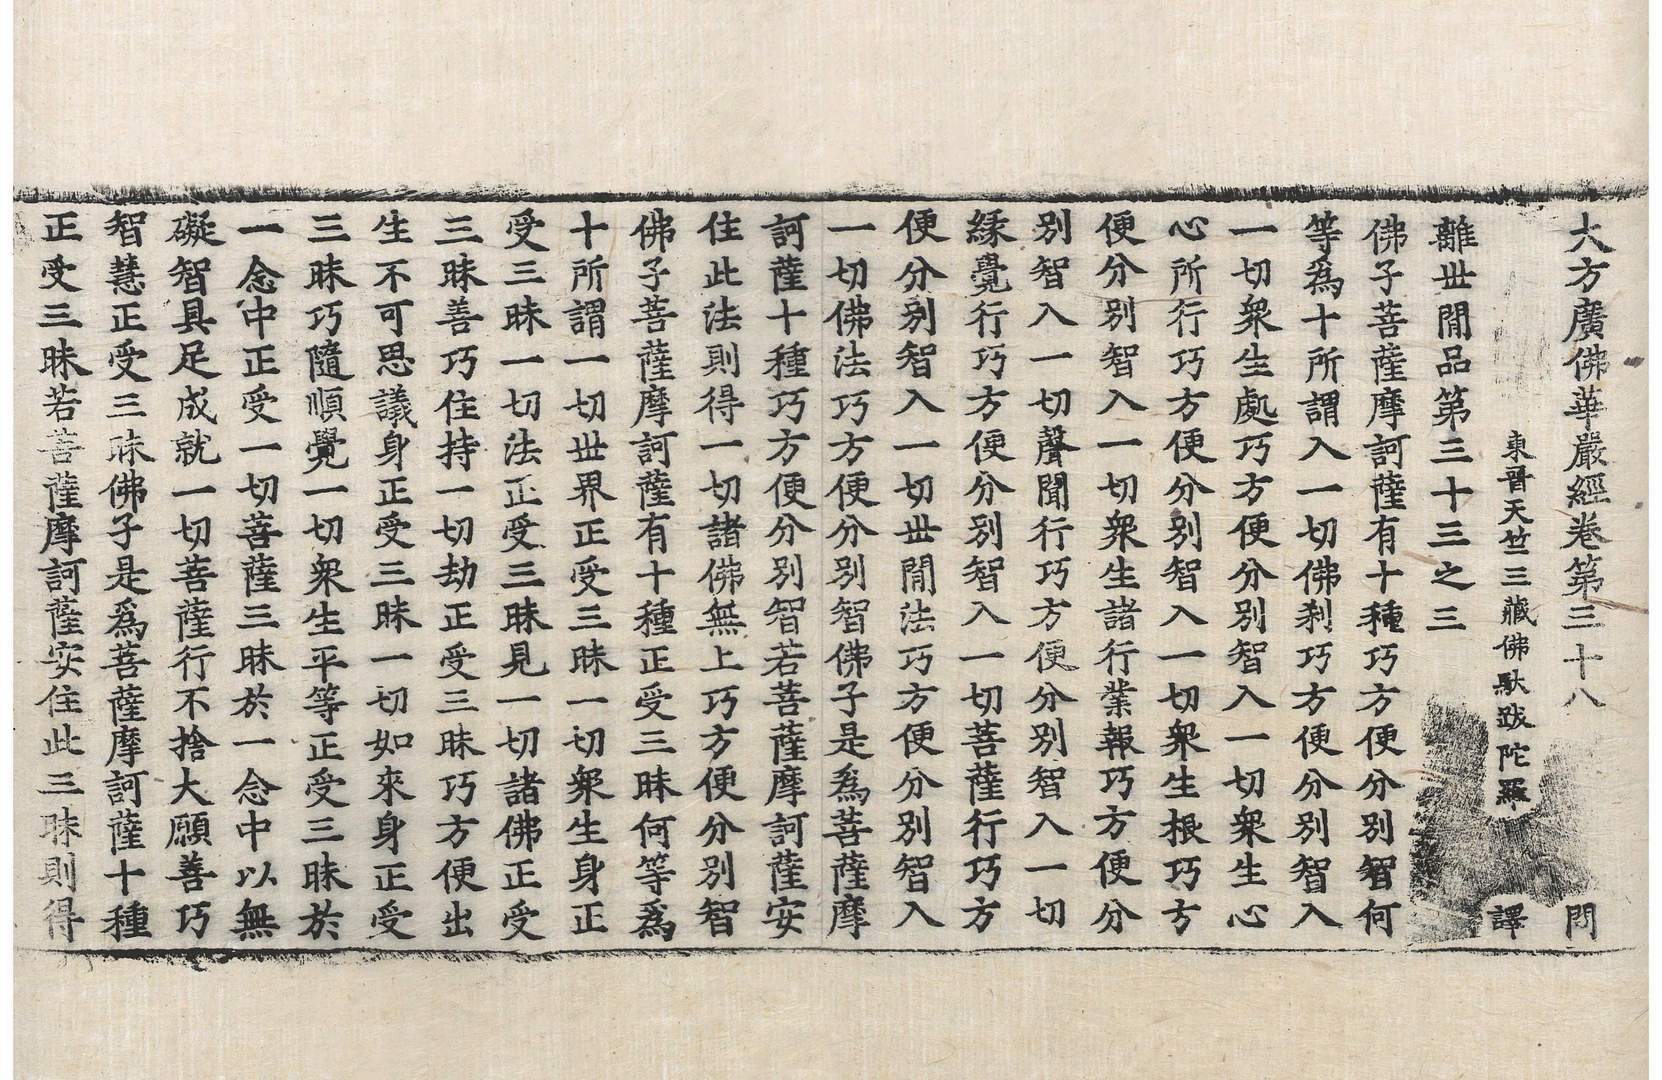 大方廣佛華嚴經卷第三十八　問
東晉天竺三藏佛馱跋陀羅　譯
離世閒品第三十三之三
佛子菩薩摩訶薩有十種巧方便分別智何
等爲十所謂入一切佛刹巧方便分別智入
一切衆生處巧方便分別智入一切衆生心
心所行巧方便分別智入一切衆生根巧方
便分別智入一切衆生諸行業報巧方便分
別智入一切聲聞行巧方便分別智入一切
緣覺行巧方便分別智入一切菩薩行巧方
便分別智入一切世閒法巧方便分別智入
一切佛法巧方便分別智佛子是爲菩薩摩
訶薩十種巧方便分別智若菩薩摩訶薩安
住此法則得一切諸佛無上巧方便分別智
佛子菩薩摩訶薩有十種正受三昧何等爲
十所謂一切世界正受三昧一切衆生身正
受三昧一切法正受三昧見一切諸佛正受
三昧善巧住持一切劫正受三昧巧方便出
生不可思議身正受三昧一切如來身正受
三昧巧隨順覺一切衆生平等正受三昧於
一念中正受一切菩薩三昧於一念中以無
礙智具足成就一切菩薩行不捨大願善巧
智慧正受三昧佛子是爲菩薩摩訶薩十種
正受三昧若菩薩摩訶薩安住此三昧則得